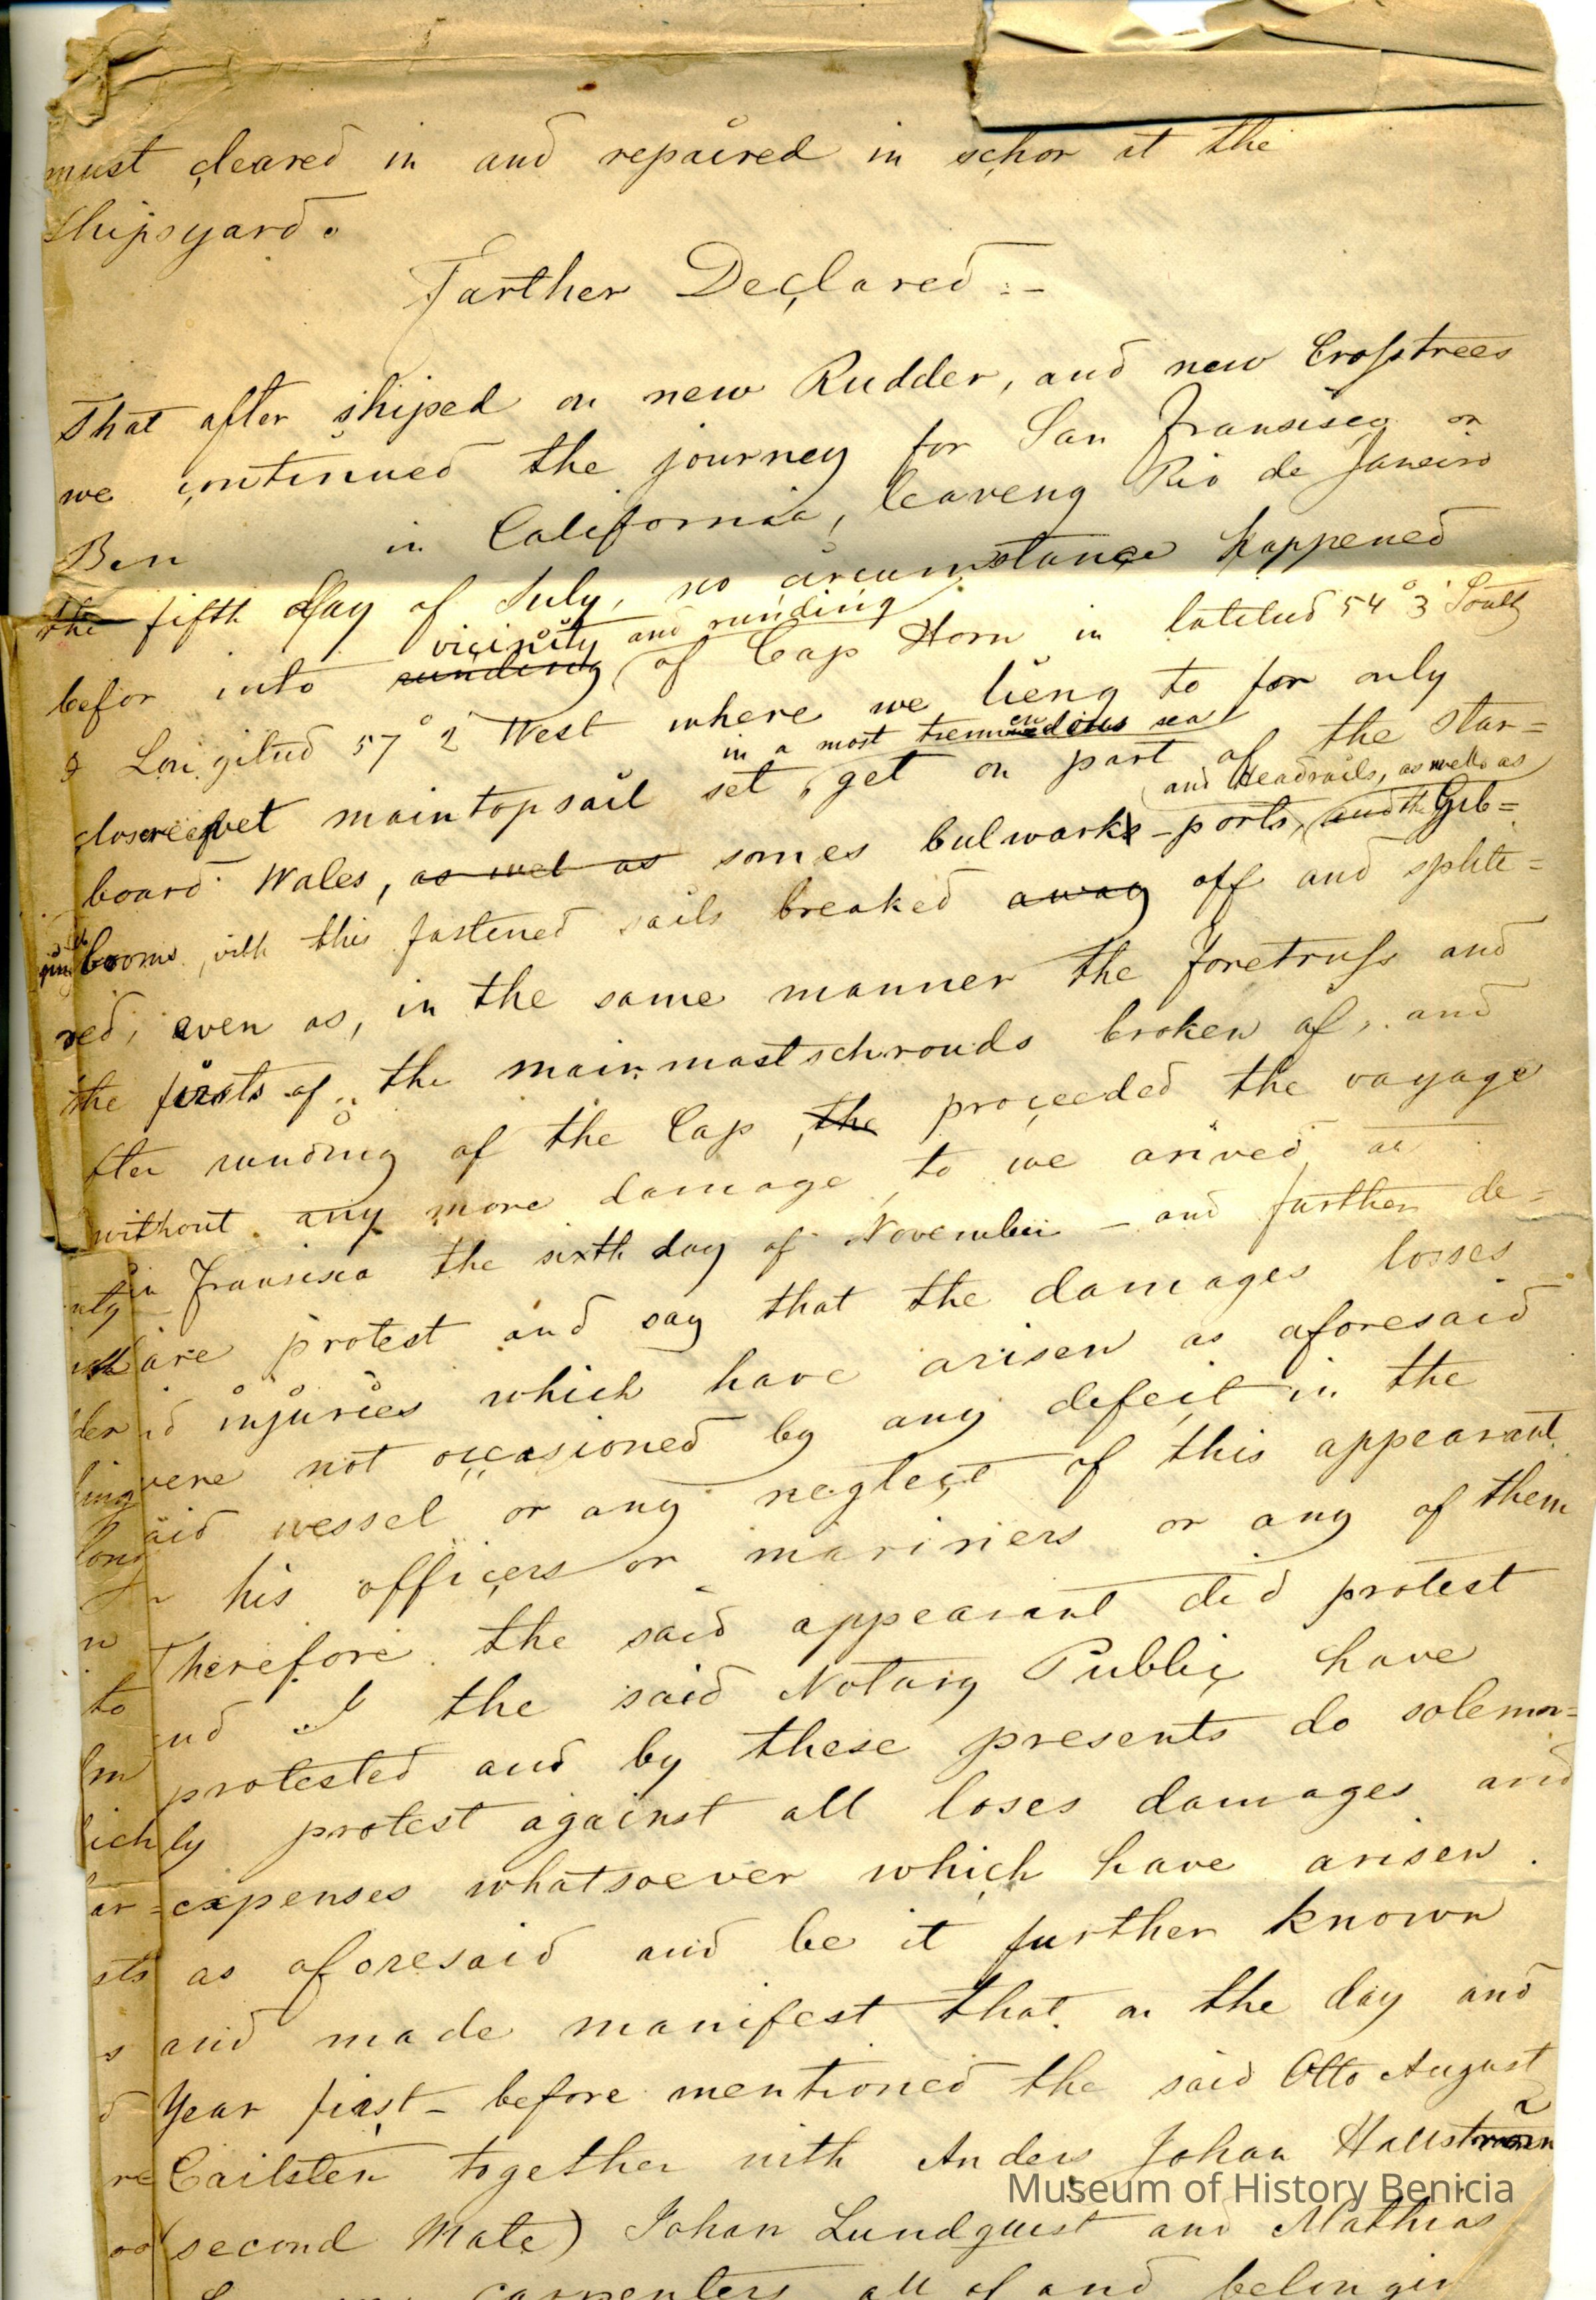 must cleared in and repaired in schor at the
shipsyard.
Farther Declared :-
That after shiped on new Rudder, and new Crosstrees
we continued the journey for San Fransisco or
Ben in California, leaveng Rio de Janeiro
the fifth day of July, no circumstance happened
vicinity and runding
befor into runding of Cap Horn in latitud 54° 3' South
& Longitud 57° 2' West where we lieng to for only
in a most tremendous sea
closereefvet maintopsail set, get on part of the star=
and Headrails, as well as
board Wales, as wel as somes bulwarks-ports, and the Gib=
booms, with this fastened sails breaked away off and splite=
red, even as, in the same manner the Foretruss and
the firsts of the mainmastschrouds broken of, and
fter runding of the Cap the proceeded the voyage
without any more damage to we arived at
n Fransisco the sixth day of November - and further de=
lare protest and say that the damages losses
nd injuries which have arisen as aforesaid
were not occasioned by any defect in the
aid wessel or any neglect of this appearant
r his officers or mariners or any of them
Therefore the said appearant did protest
nd I the said Notary Public have
protested and by these presents do solemn=
ly protest against all loses damages and
expenses whatsoever which have arisen
as aforesaid and be it further known
and made manifest that on the day and
Year first - before mentioned the said Otto August
Carlsten together with Anders Johan
(second Mate) Johan Lundquist and Mathias
carpenters all of and belongin
Museum of History Benicia